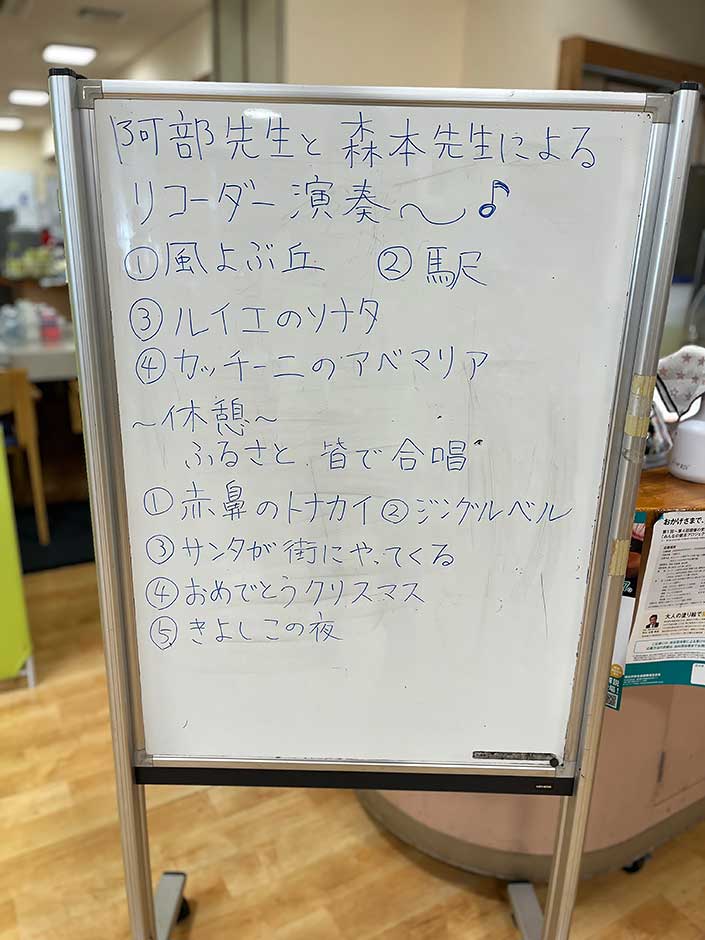 阿部先生と森本先生による
リコーダー演奏〜♪
①風よぶ丘 ②駅
③ルイエのソナタ
④カッチーニのアベマリア
〜休憩〜
ふるさと 皆で合唱
①赤鼻のトナカイ②ジングルベル
③サンタが街にやってくる
④おめでとうクリスマス
⑤きよしこの夜
おかげさまで、
大人の塗り絵